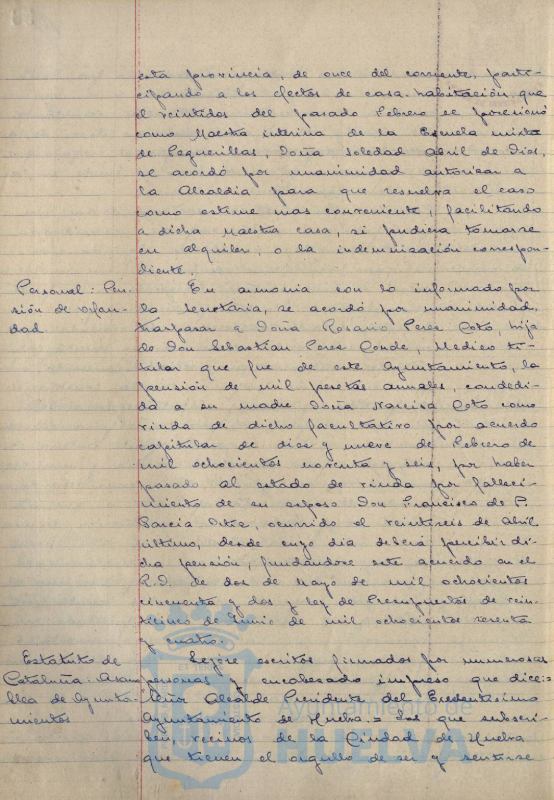 esta provincia, de once del corriente, parti-
cipando a los efectos de casa-habitación que
el veintidos del pasado Febrero se posesionó
como Maestra interina de la Escuela mixta
de Peguerillas, Doña Soledad Abril de Dios,
se acordó por unanimidad autorizar a
la Alcaldía para que resuelva el caso
como estime mas conveniente, facilitando
a dicha Maestra casa, si pudiera tomarse
en alquiler, o la indemnización correspon-
diente.
Personal: Pen-
sión de orfan-
dad
En armonia con lo informado por
la Secretaría, se acordó por unanimidad,
traspasar a Doña Rosario Perez Coto, hija
de Don Sebastián Perez Conde, Medico ti-
tular que fue de este Ayuntamiento, la
pensión de mil pesetas anuales, conde di-
da a su madre Doña Narcisa Coto como
viuda de dicho facultativo por acuerdo
capitular de diez y nueve de Febrero de
mil ochocientos noventa y seis, por haber
pasado al estado de viuda por falleci-
miento de su esposo Don Francisco de P.
García Ortiz, ocurrido el veintiseis de Abril
último, desde cuyo dia deberá percibir di-
cha pensión, fundándose este acuerdo en el
R.D. de dos de Mayo de mil ochocientos
cincuenta y dos y Ley de Presupuestos de vein-
ticinco de Junio de mil ochocientos sesenta
y cuatro.
Estatuto de
Cataluña: Asam-
blea de Ayunta-
mientos
Leyose escritos firmados por numerosas
personas y encabezado impreso que dice:=
Señor Alcalde Presidente del Excelentísimo
Ayuntamiento de Huelva.= Los que subscri-
ben, vecinos de la Ciudad de Huelva
que tienen el orgullo de ser y sentirse
Ayuntamiento de
HUELVA